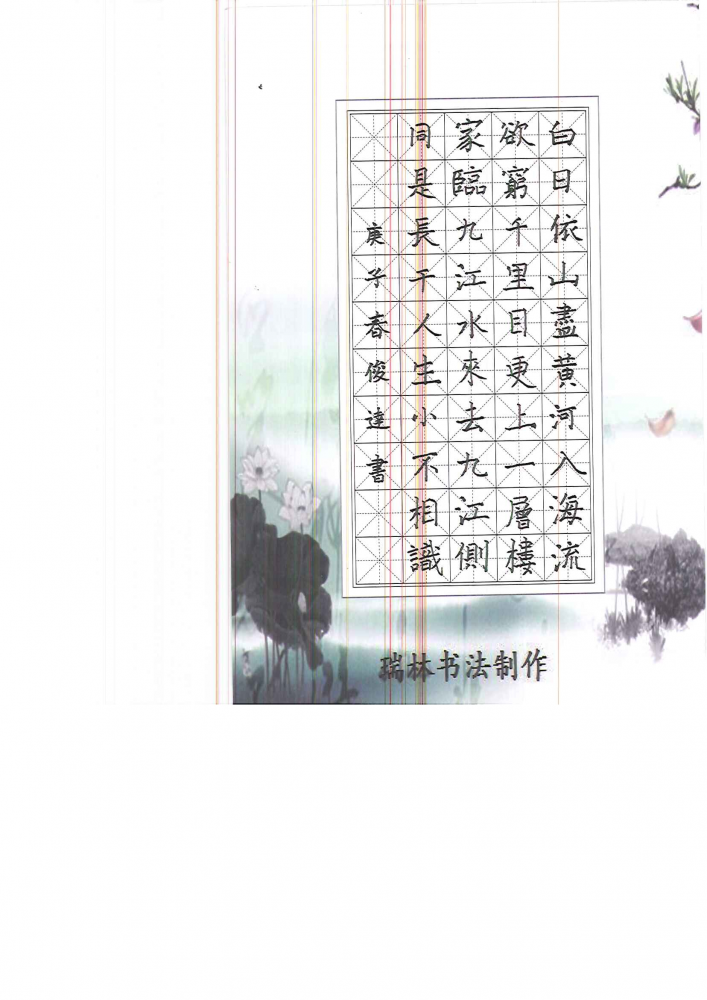 白日依山盡黃河入海流
欲窮千里目更上一層樓
家臨九江水來去九江側
同是長干人生小不相識
庚子春俊達書
瑞林书法制作